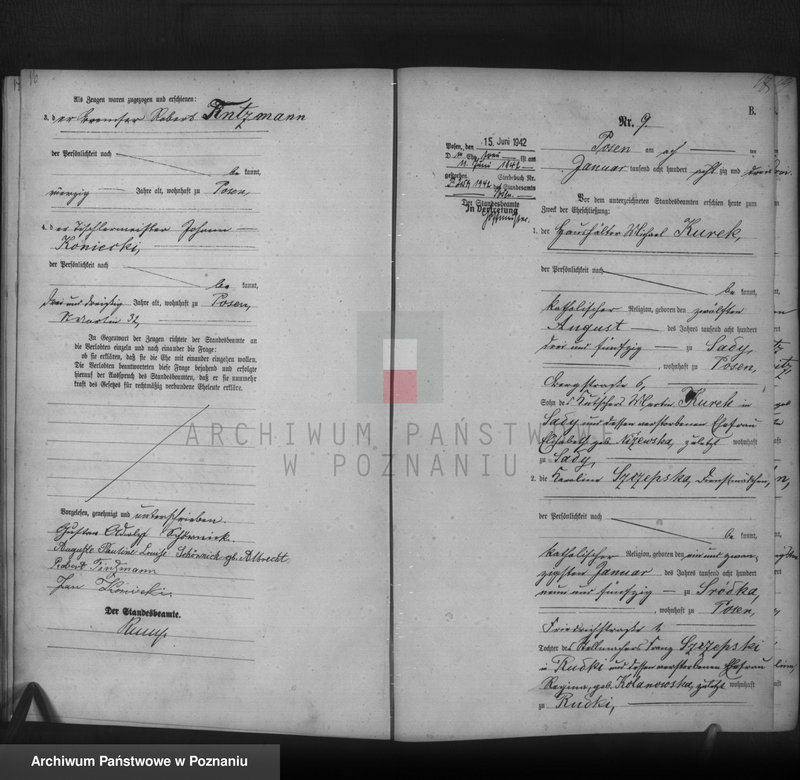 16
Als Zeugen waren zugezogen und erschienen:
3. der Bremser Robert Fintzmann
der Persönlichkeit nach
be kannt,
vierzig Jahre alt, wohnhaft zu Posen,
4. der Tischlermeister Johann
Koniecki,
der Persönlichkeit nach
be kannt,
drei und dreißig Jahre alt, wohnhaft zu Posen,
St. Martin 32,
In Gegenwart der Zeugen richtete der Standesbeamte an
die Verlobten einzeln und nach einander die Frage:
ob sie erklären, daß sie die Ehe mit einander eingehen wollen.
Die Verlobten beantworteten diese Frage bejahend und erfolgte
hierauf der Ausspruch des Standesbeamten, daß er sie nunmehr
kraft des Gesetzes für rechtmäßig verbundene Eheleute erkläre.
Vorgelesen, genehmigt und unterschrieben.
Gustav Adolf Schörnick
Auguste Pauline Louise Schörnick gb. Albrecht
Robert Fintzmann
Jan Koniecki
Der Standesbeamte.
B.
Nr. 9.
Posen am acht ten
Januar tausend acht hundert acht zig und drei
Posen, 15. Juni 1942
ist am
geboren
Sterbebuch Nr.
des Standesamts
Posen
Der Standesbeamte
In Vertretung
Vor dem unterzeichneten Standesbeamten erschienen heute zum
Zweck der Eheschließung:
1. der Haushälter Michael Kurek,
der Persönlichkeit nach
be kannt,
katholischer Religion, geboren den zwölften
August des Jahres tausend acht hundert
drei und fünfzig zu Sady,
, wohnhaft zu Posen,
Obergstraße 6,
Sohn des Kutschers Martin Kurek in
Sady und dessen verstorbenen Ehefrau
Elisabeth geb. zuletzt wohnhaft
zu Sady,
2. die Karoline Szczepska, Dienstmädchen,
der Persönlichkeit nach
be kannt,
katholischer Religion, geboren den ein und zwan
zigsten Januar des Jahres tausend acht hundert
neun und fünfzig zu Sródka,
, wohnhaft zu Posen,
Friedrichstraße
Tochter des Stellmachers Franz Szczepski
in Rudki und dessen verstorbenen Ehefrau
Regina, geb. Kolanowska, zuletzt wohnhaft
zu Rudki,
ARCHIWUM PAŃSTWOWE
W POZNANIU
Archiwum Państwowe w Poznaniu